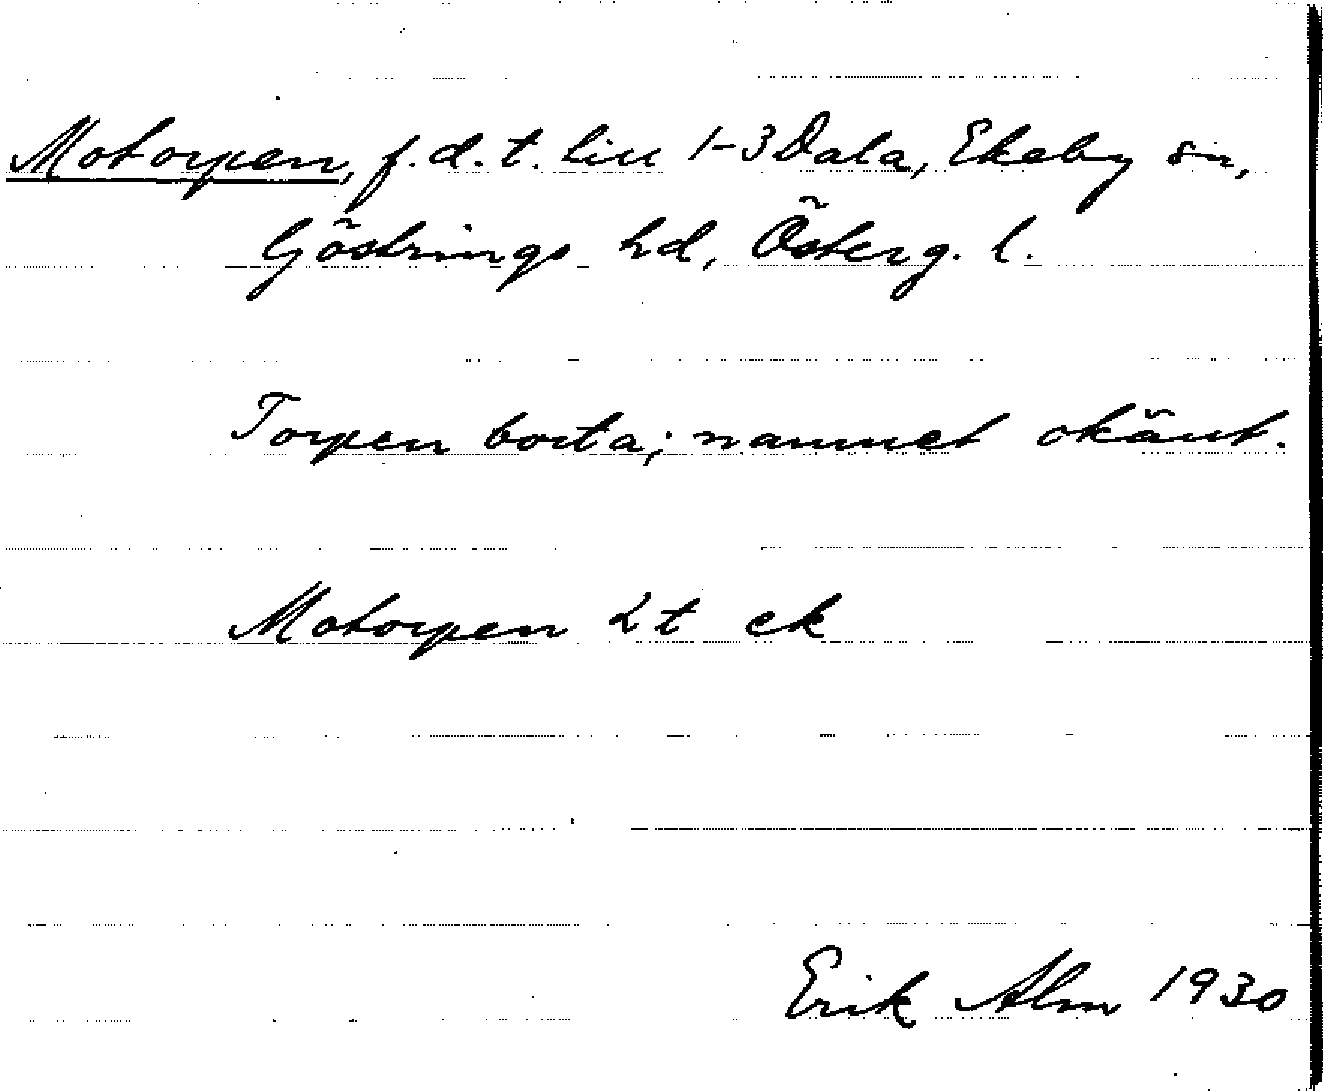 Motorpen, f.d.t. till 1-3 Dala, Ekeby sn,
Göstrings hd, Österg. l.
Torpen borta; namnet okänt.
Motorpen 2 t ek
Erik Alm 1930